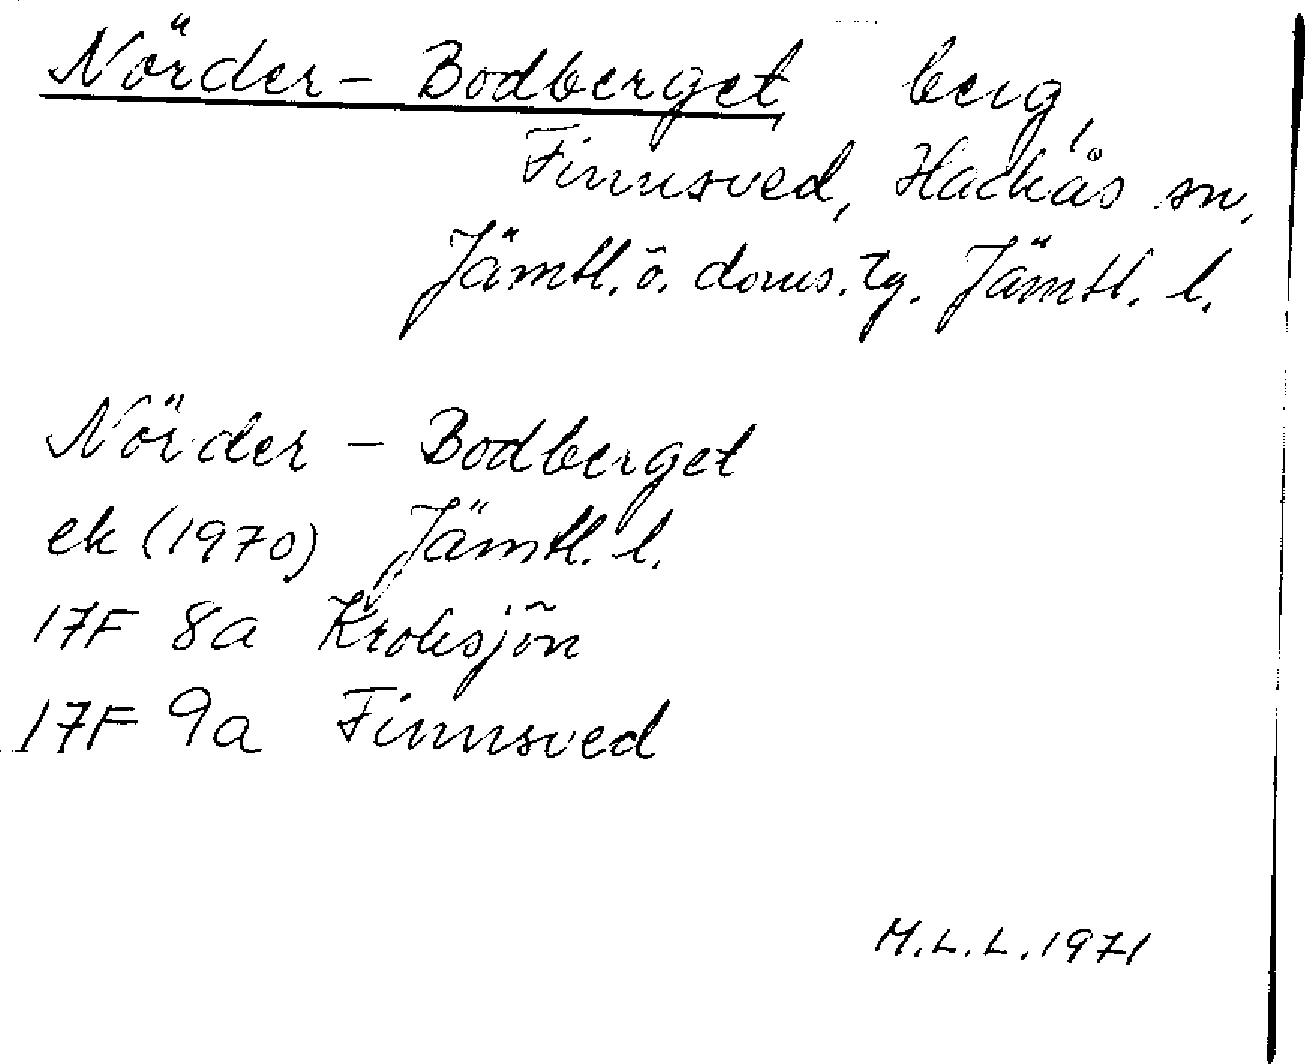 Nörder-Bodberget berg,
Finnsved, Hackås sn,
Jämtl. ö. doms. tg. Jämtl. l.
Nörder - Bodberget
ek (1970) Jämtl. l.
17F 8a Kroksjön
17F 9a Finnsved
M.L.L. 1971